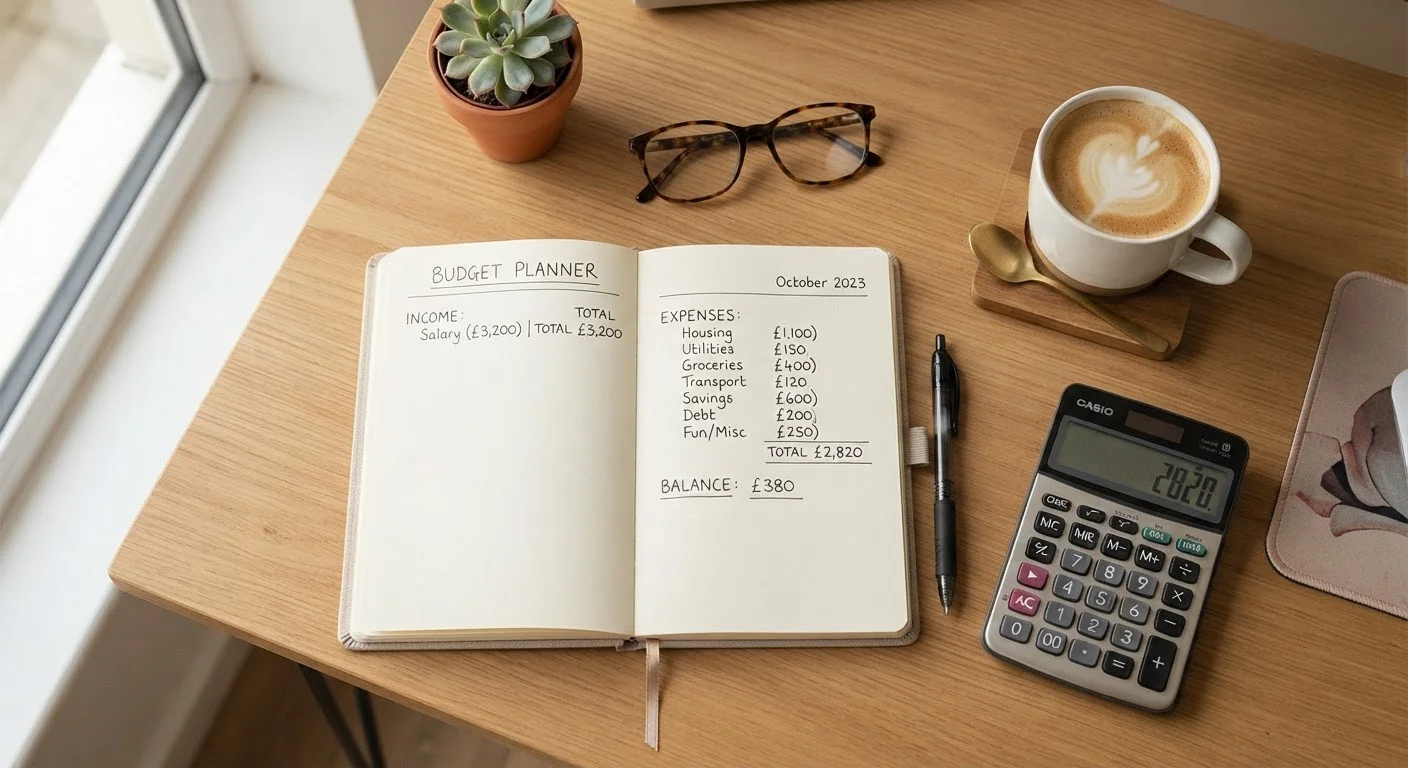 BUDGET PLANNER
INCOME: TOTAL
Salary (£3,200) | TOTAL £3,200
October 2023
EXPENSES:
Housing £1,100)
Utilities £150
Groceries £400)
Transport £120
Savings £600)
Debt £200
Fun/Misc £250)
TOTAL £2,820
BALANCE: £380
CASIO
2820.
MC MR M- M+ ÷
7 8 9 ×
4 5 6 −
AC 1 2 3 +
0 00 . =